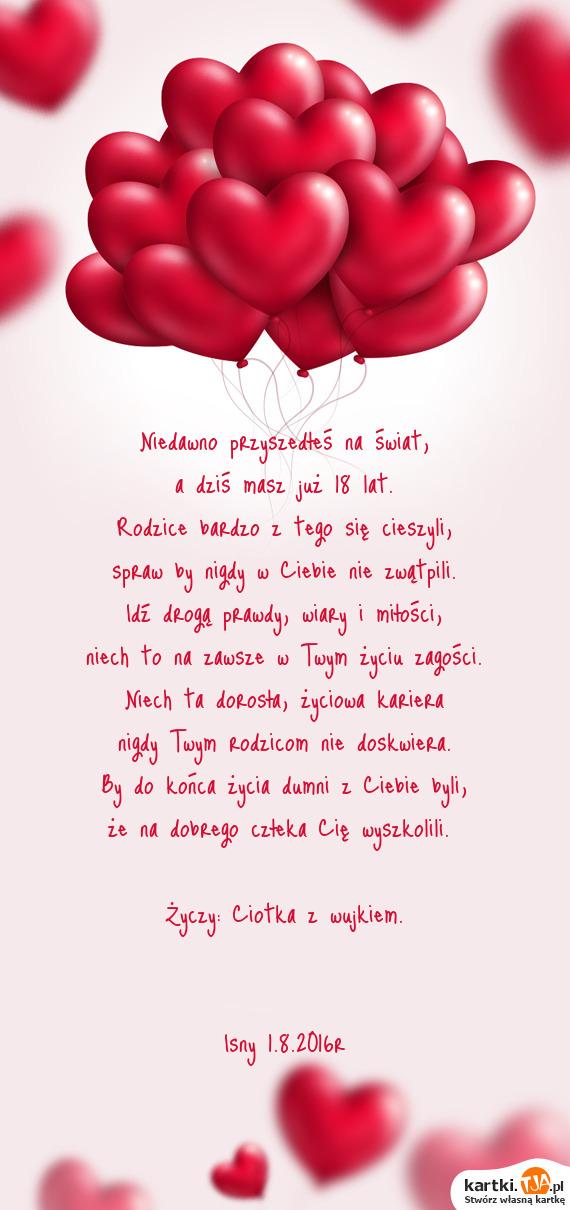 Niedawno przyszedłeś na świat,
a dziś masz już 18 lat.
Rodzice bardzo z tego się cieszyli,
spraw by nigdy w Ciebie nie zwątpili.
Idź drogą prawdy, wiary i miłości,
niech to na zawsze w Twym życiu zagości.
Niech ta dorosła, życiowa kariera
nigdy Twym rodzicom nie doskwiera.
By do końca życia dumni z Ciebie byli,
że na dobrego człeka Cię wyszkolili.
Życzy: Ciotka z wujkiem.
Isny 1.8.2016r
kartki.TJA.pl
Stwórz własną kartkę